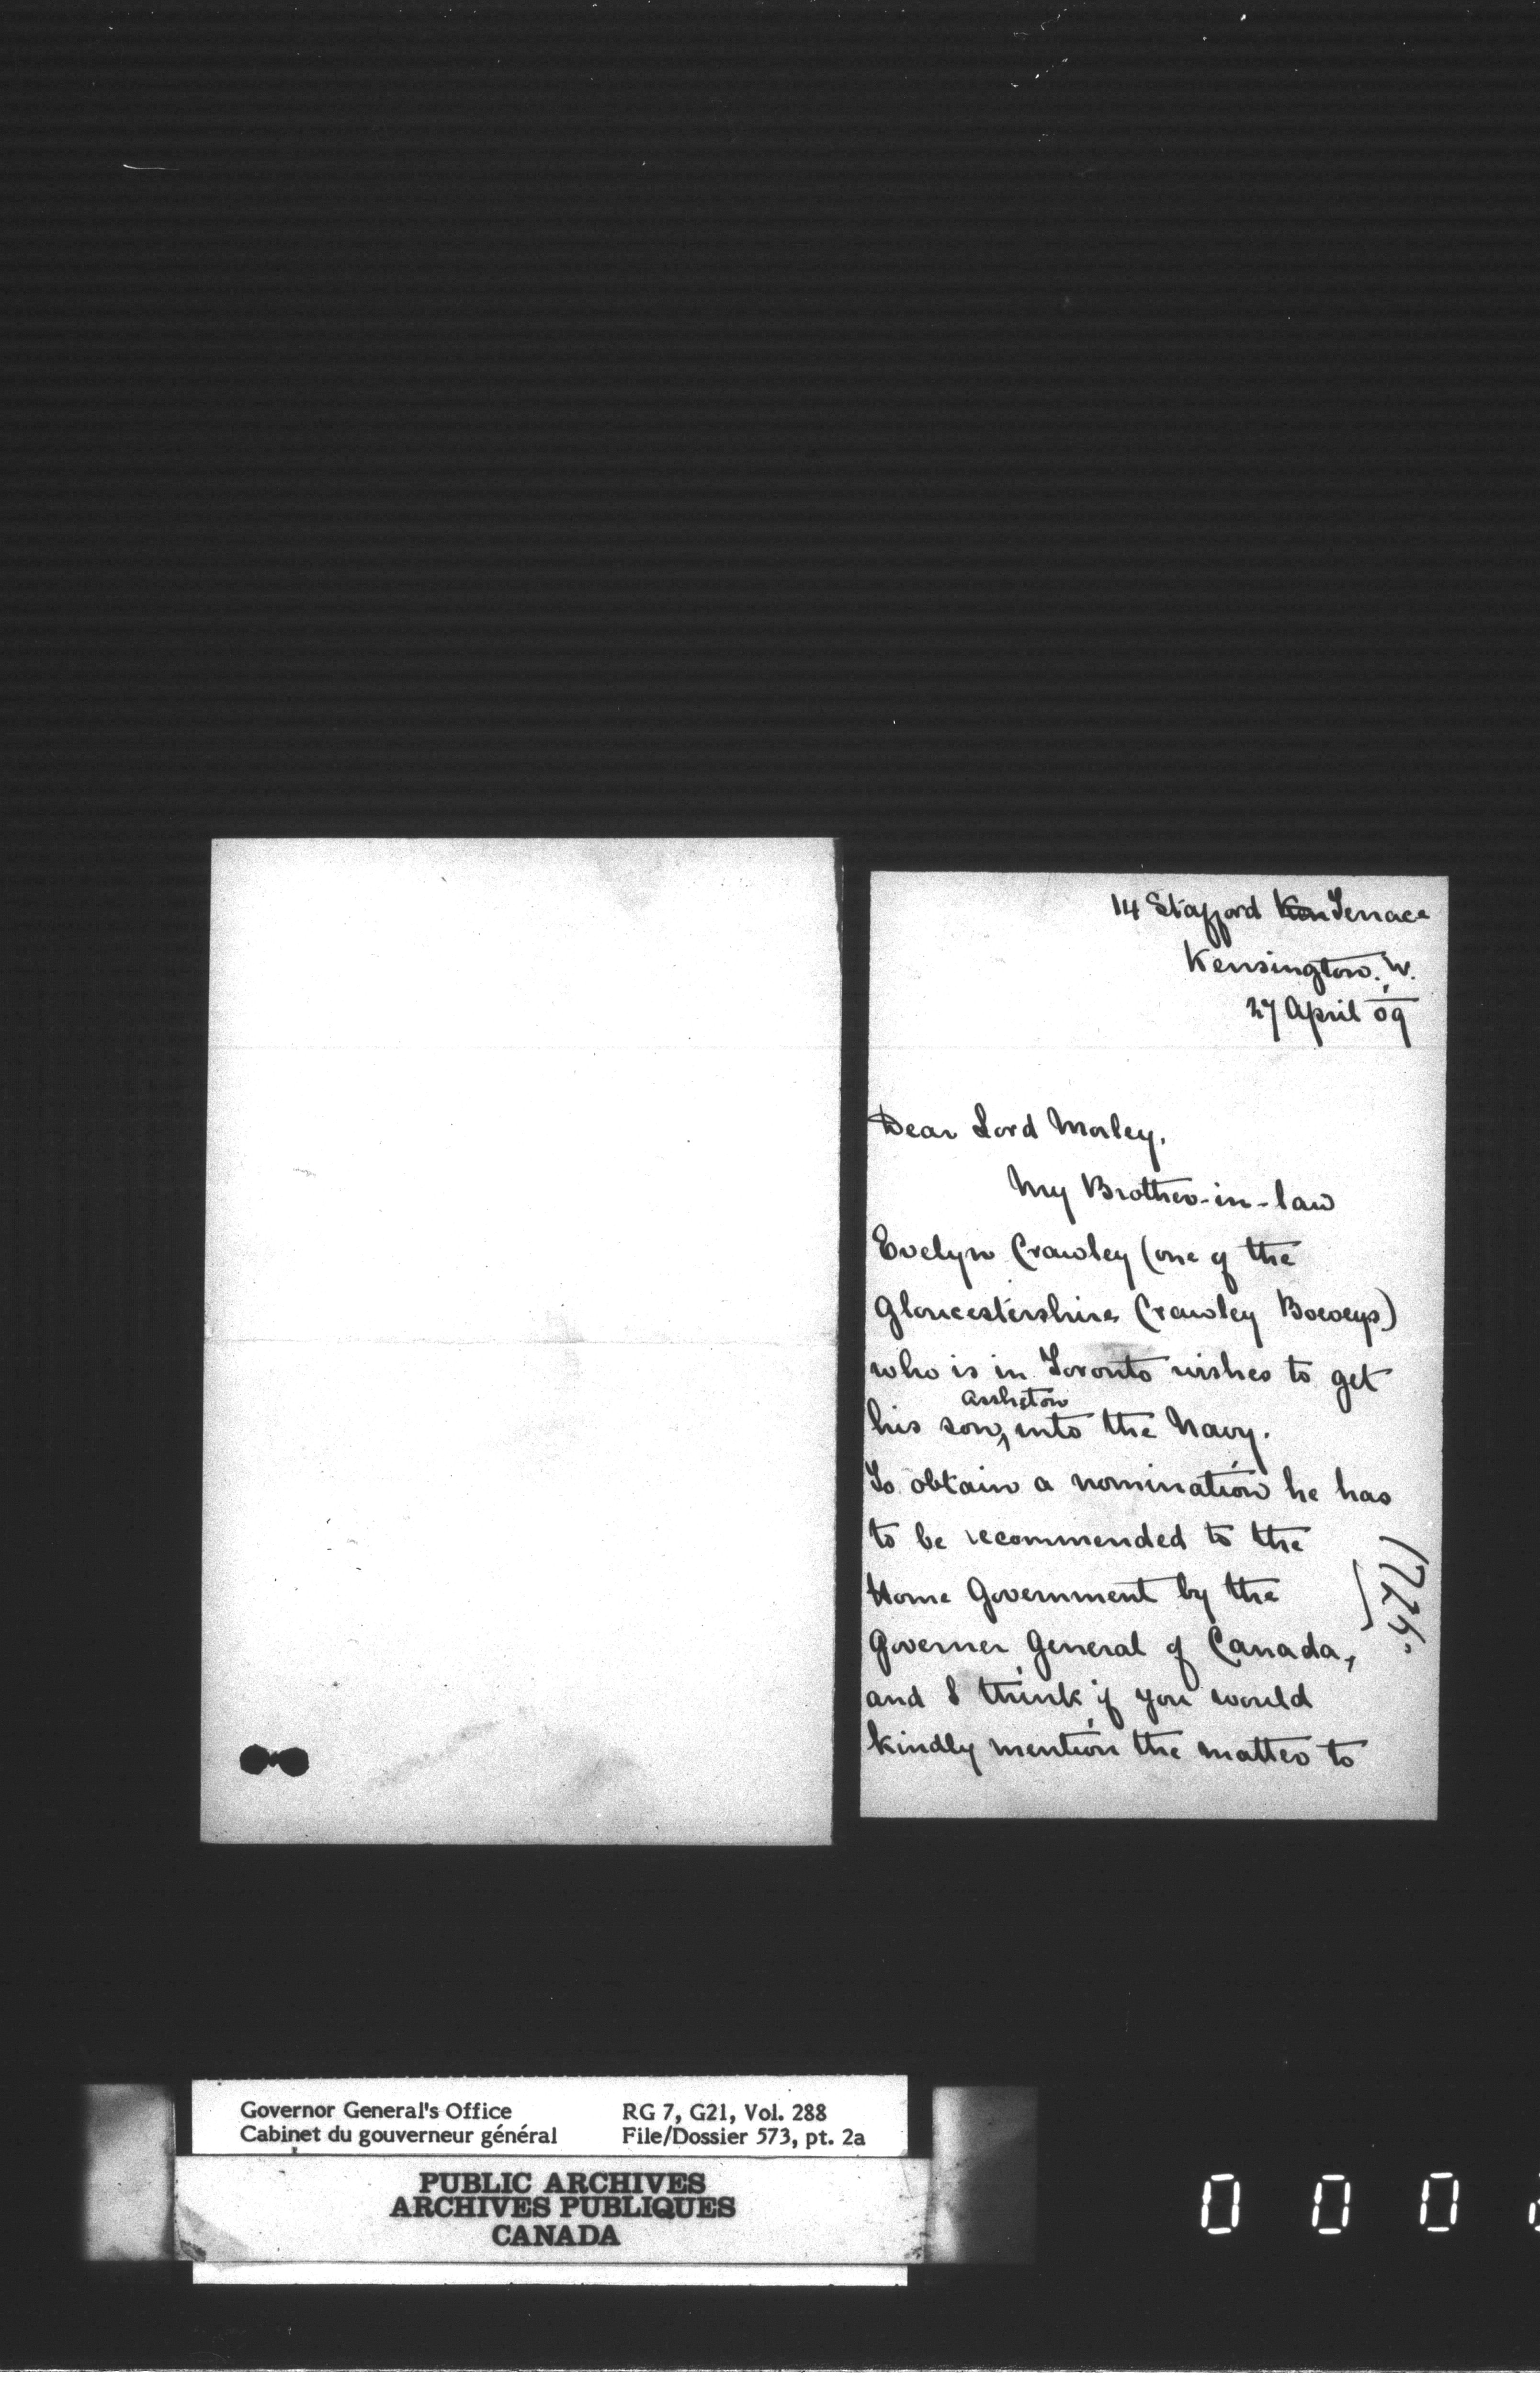 14 Stafford Ken Terrace
Kensington. W.
27 April 09
Dear Lord Morley,
My Brother-in-law
Evelyn Crawley (one of the
Gloucestershire Crawley Boeveys)
who is in Toronto wishes to get
assheton
his son, into the Navy.
To obtain a nomination he has
to be recommended to the
Home Government by the
Governer General of Canada,
and I think if you would
kindly mention the matter to
Governor General's Office
Cabinet du gouverneur général
RG 7, G21, Vol. 288
File/Dossier 573, pt. 2a
PUBLIC ARCHIVES
ARCHIVES PUBLIQUES
CANADA
0 0 0